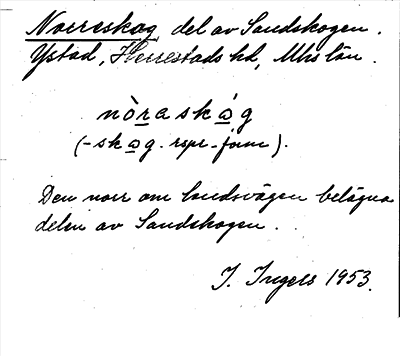 Norreskog del av Sandskogen.
Ystad, Herrestads hd, Mhs län.
nòraskǻg
(-skog. rspr-form).
Den norr om landsvägen belägna
delen av Sandskogen.
I. Ingers 1953.